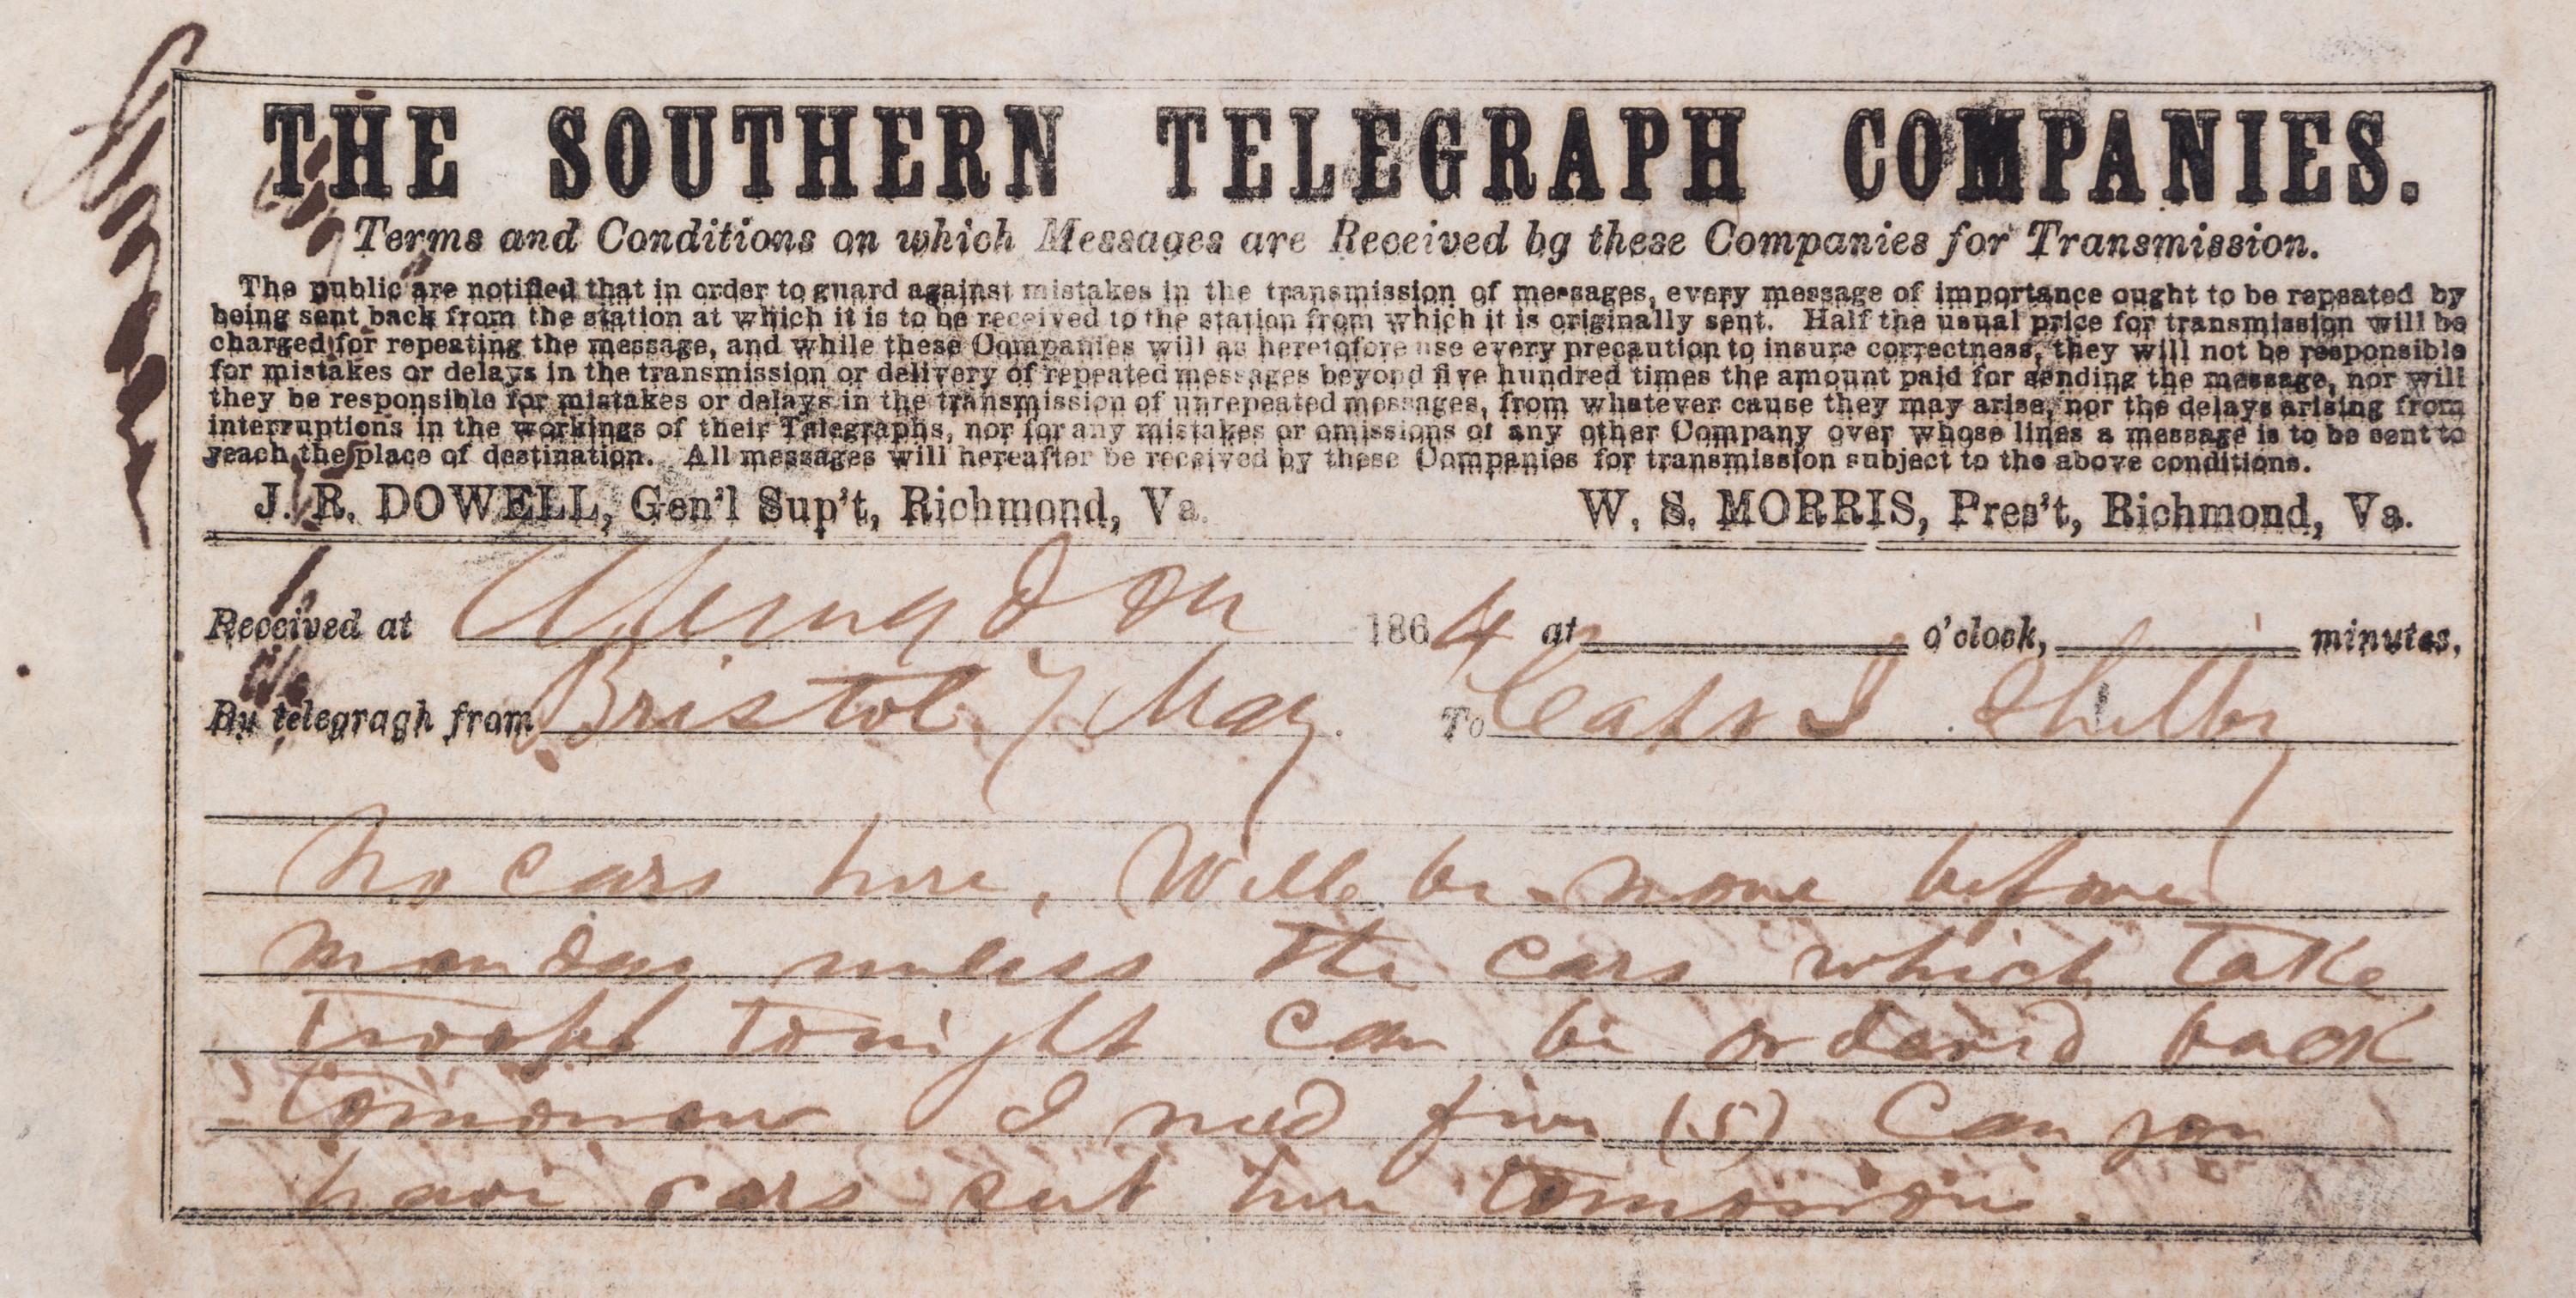 THE SOUTHERN TELEGRAPH COMPANIES.
Terms and Conditions on which Messages are Received by these Companies for Transmission.
The public are notified that in order to guard against mistakes in the transmission of messages, every message of importance ought to be repeated by
being sent back from the station at which it is to be received to the station from which it is originally sent. Half the usual price for transmission will be
charged for repeating the message, and while these Companies will as heretofore use every precaution to insure correctness, they will not be responsible
for mistakes or delays in the transmission or delivery of repeated messages beyond five hundred times the amount paid for sending the message, nor will
they be responsible for mistakes or delays in the transmission of unrepeated messages, from whatever cause they may arise, nor the delays arising from
interruptions in the workings of their Telegraphs, nor for any mistakes or omissions of any other Company over whose lines a message is to be sent to
reach the place of destination. All messages will hereafter be received by these Companies for transmission subject to the above conditions.
J. R. DOWELL, Gen'l Sup't, Richmond, Va. W. S. MORRIS, Pres't, Richmond, Va.
Received at Abingdon 1864 at o'clock, minutes,
By telegragh from Bristol 7 May To Capt Shelby
No cars here. Will be none before
monday unless the cars which take
troops tonight can be ordered back
Tomorrow I need five (5) Can you
have cars sent here tomorrow.